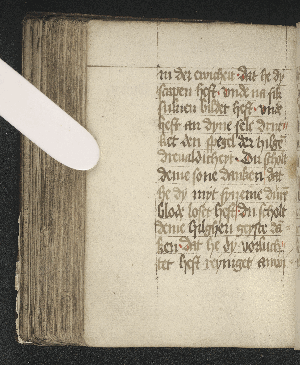 in der ewicheit dat he dy
scapen heft vnde na sik
suluen bildet heft vnde
heft an dyne sele druc
ket den speygel der hilge
dreualdicheyt Du scholt
deme sone danken dat
he dy myt syneme dur
blode loset heft du scholt
deme hilghen geyste da
ken dat he dy vorluch
tet heft reyniget